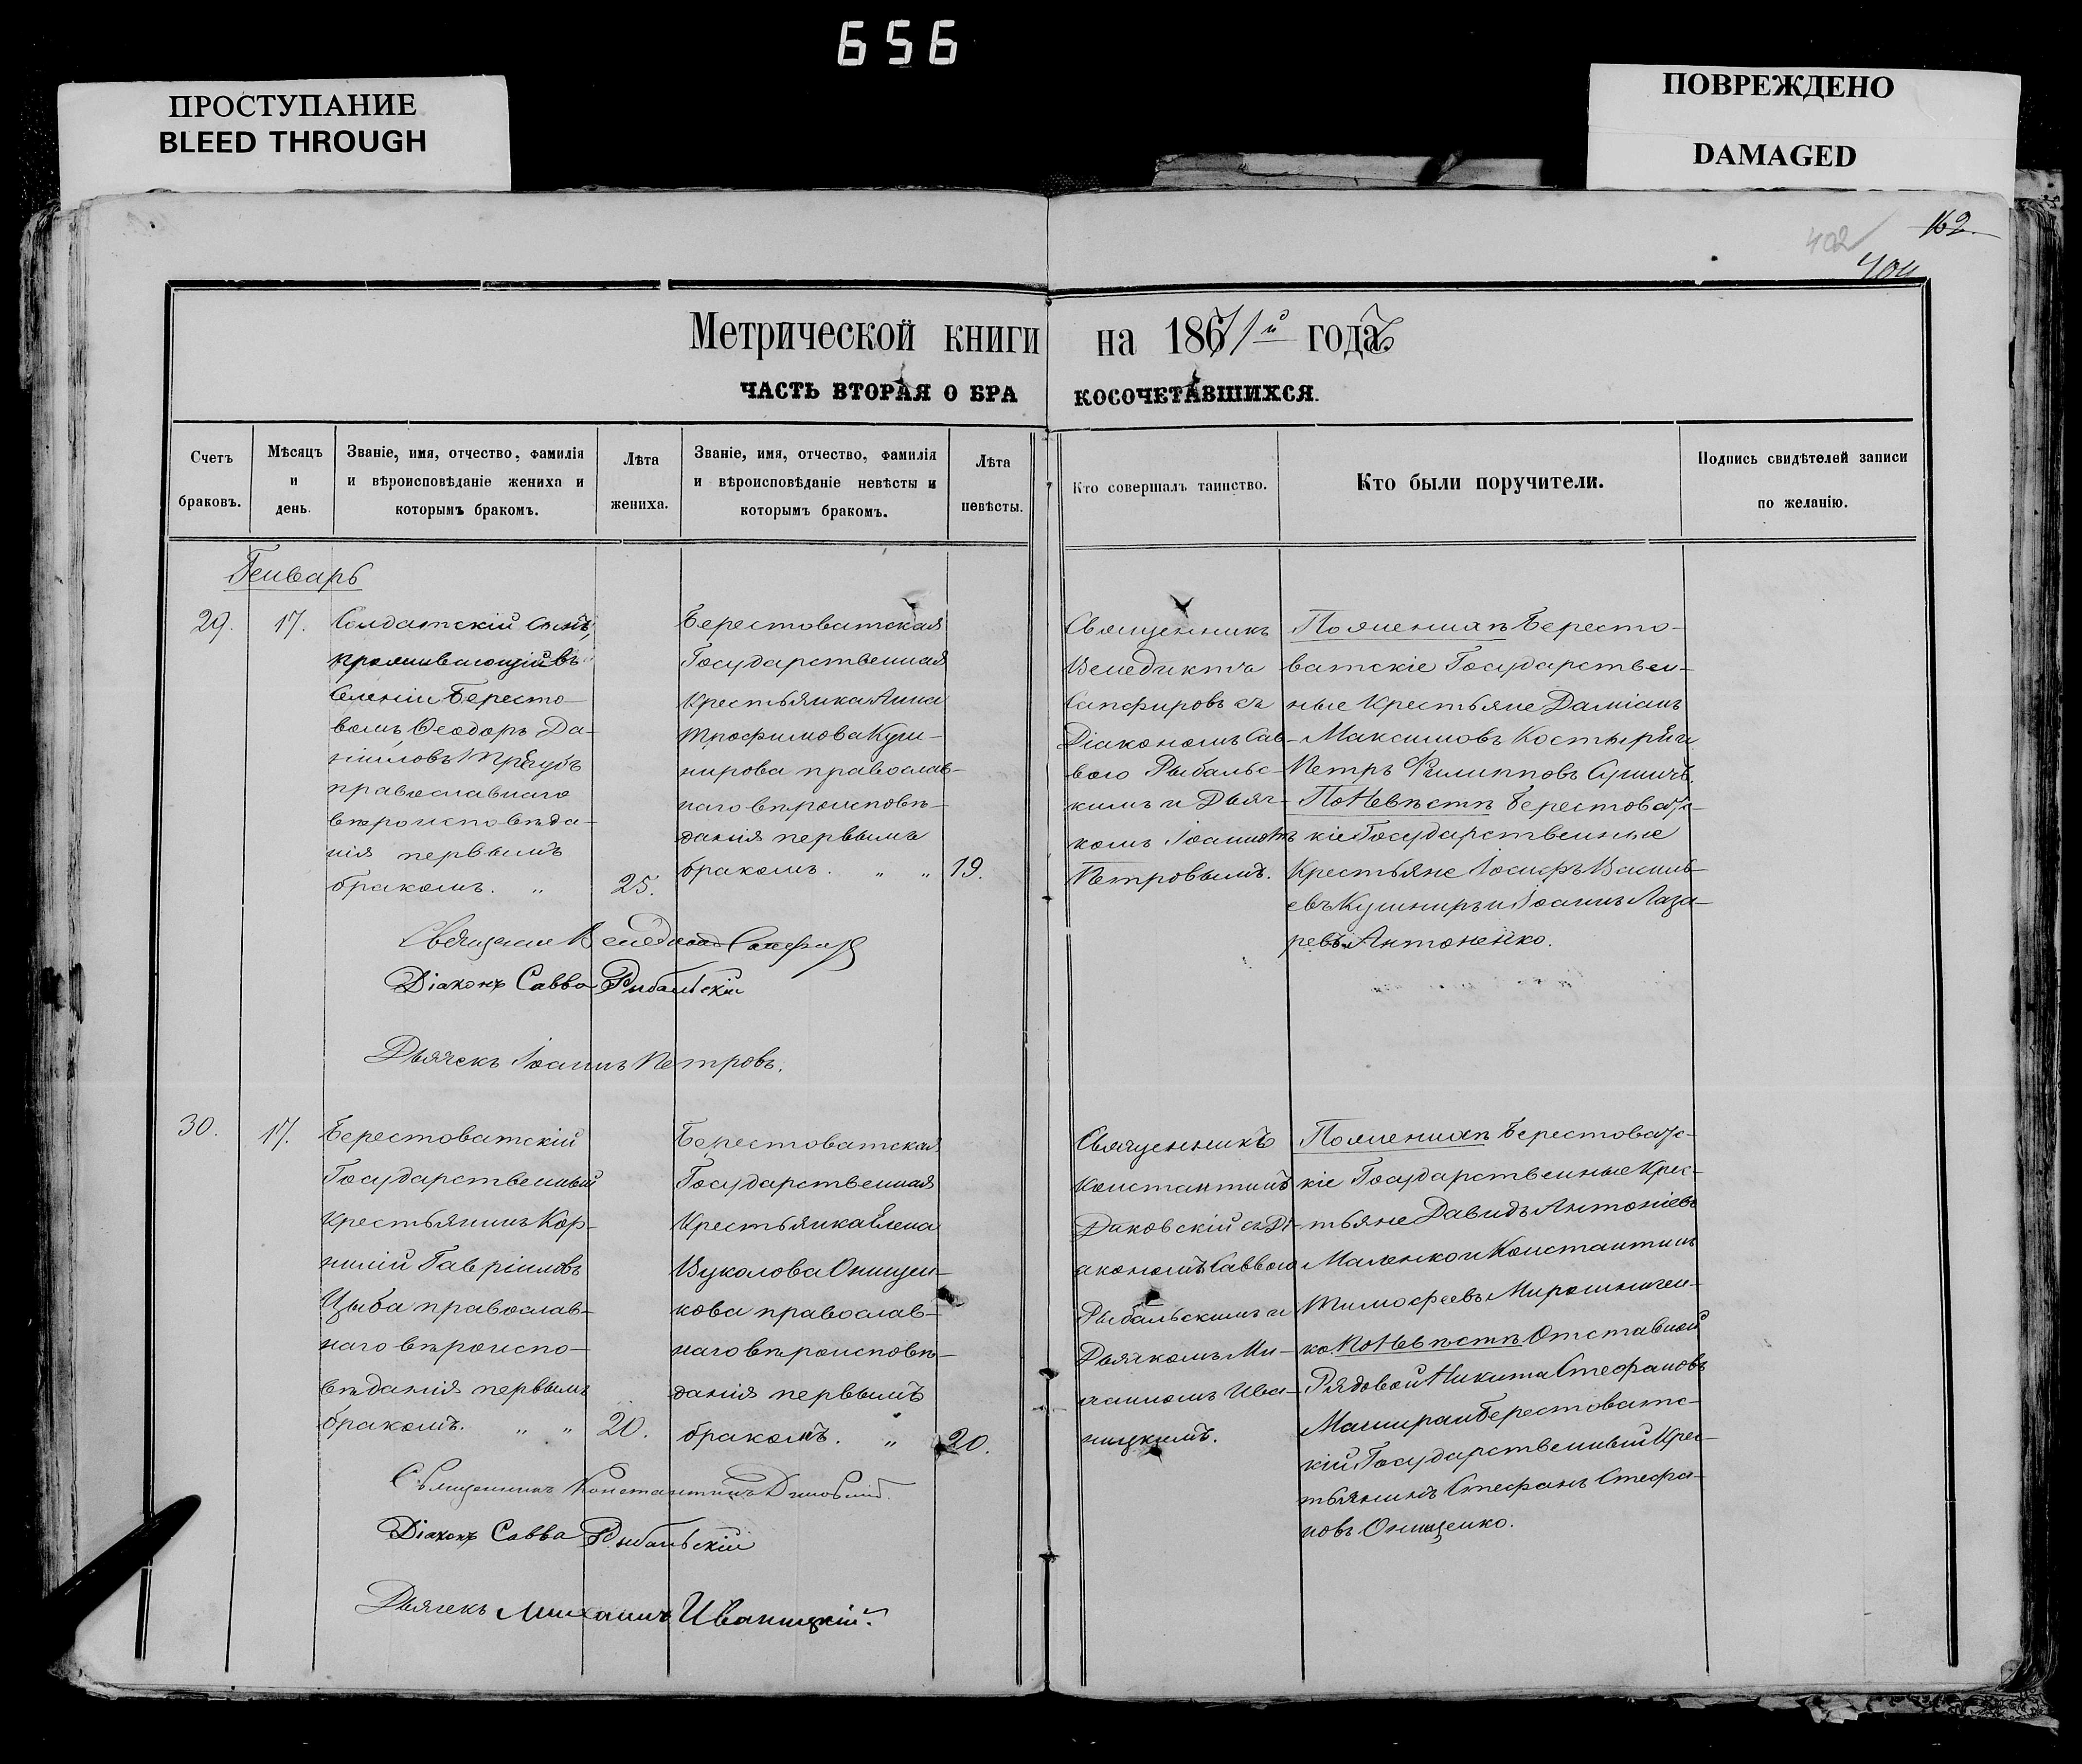 656
ПРОСТУПАНИЕ
BLEED THROUGH
ПОВРЕЖДЕНО
DAMAGED
402
162.
404
Метрической книги на 1871й года
ЧАСТЬ ВТОРАЯ О БРАКОСОЧЕТАВШИХСЯ.
Счетъ
браковъ.
Мѣсяцъ
и
день.
Званіе, имя, отчество, фамилія
и вѣроисповѣданіе жениха и
которымъ бракомъ.
Лѣта
жениха.
Званіе, имя, отчество, фамилія
и вѣроисповѣданіе невѣсты и
которымъ бракомъ.
Лѣта
невѣсты.
Кто совершалъ таинство.
Кто были поручители.
Подпись свидѣтелей записи
по желанію.
Генварь
29.
17.
Солдатскій сынъ,
проживающій въ
Селеніи Бересто-
вомъ Ѳеодоръ Да-
ніиловъ
православнаго
вѣроисповѣда-
нія первымъ
бракомъ. „
25.
Берестоватская
Государственная
Крестьянка Анна
Трофимова Куш-
нирова православ-
наго вѣроисповѣ-
данія первымъ
бракомъ. „ „
19.
Священникъ
Венедиктъ
Сапфировъ съ
Діакономъ Сав-
вою Рыбальс-
кимъ и Дьяч-
комъ Іоанномъ
Петровымъ.
По женихѣ Бересто-
ватскіе Государствен-
ные Крестьяне Даміанъ
Максимовъ Костыря и
Петръ Филипповъ
По Невѣстѣ Берестоватс-
кіе Государственные
Крестьяне Іосифъ Василь-
евъ Кушниръ и Іоаннъ Лаза-
ревъ Антоненко.
Священникъ Венедиктъ Сапфировъ
Діаконъ Савва Рыбальскій
Дьячекъ Іоаннъ Петровъ.
30.
17.
Берестоватскій
Государственный
Крестьянинъ Кор-
нилій Гавріиловъ
Цыба православ-
наго вѣроиспо-
вѣданія первымъ
бракомъ. „ „
20.
Берестоватская
Государственная
Крестьянка Елена
Вуколова Онищен-
кова православ-
наго вѣроисповѣ-
данія первымъ
бракомъ. „
20.
Священникъ
Константинъ
съ Ді-
акономъ Саввою
Рыбальскимъ и
Дьячкомъ Ми-
хаиломъ Ива-
ницкимъ.
По женихѣ Берестоватс-
кіе Государственные Крес-
тьяне Давидъ Антоніевъ
и Константинъ
Тимофеевъ Мирошничен-
ко. По Невѣстѣ Отставной
Рядовой Никита Стефановъ
Берестоватс-
кій Государственный Крес-
тьянинъ Стефанъ Стефа-
новъ Онищенко.
Священникъ Константинъ
Діаконъ Савва Рыбальскій
Дьячекъ Михаилъ Иваницкій.